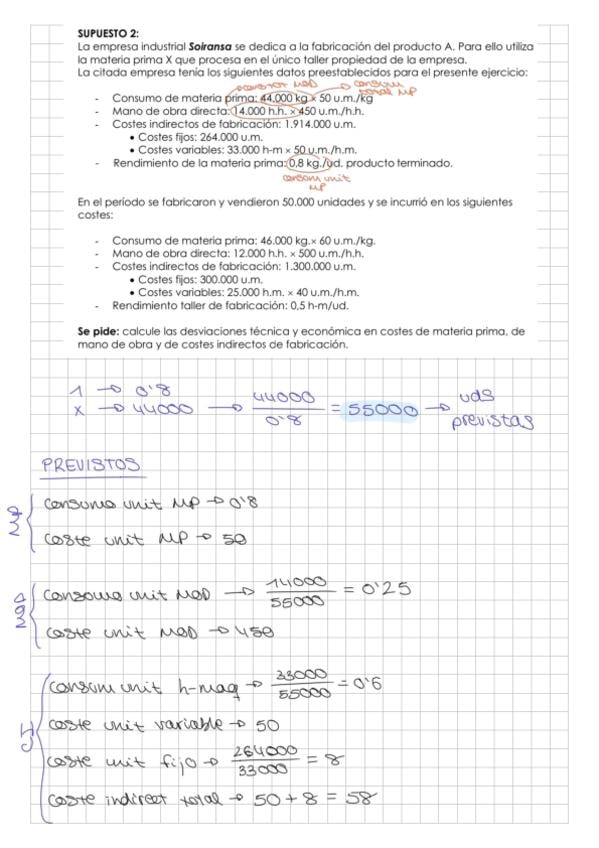 SUPUESTO 2:
La empresa industrial Soiransa se dedica a la fabricación del producto A. Para ello utiliza
la materia prima X que procesa en el único taller propiedad de la empresa.
La citada empresa tenía los siguientes datos preestablecidos para el presente ejercicio:
consum
total MP
- Consumo de materia prima: 44.000 kg × 50 u.m./kg
- Mano de obra directa: 14.000 h.h. × 450 u.m./h.h.
- Costes indirectos de fabricación: 1.914.000 u.m.
• Costes fijos: 264.000 u.m.
• Costes variables: 33.000 h-m × 50 u.m./h.m.
- Rendimiento de la materia prima: 0,8 kg./ud. producto terminado.
consum unit
MP
En el período se fabricaron y vendieron 50.000 unidades y se incurrió en los siguientes
costes:
- Consumo de materia prima: 46.000 kg.× 60 u.m./kg.
- Mano de obra directa: 12.000 h.h. × 500 u.m./h.h.
- Costes indirectos de fabricación: 1.300.000 u.m.
• Costes fijos: 300.000 u.m.
• Costes variables: 25.000 h.m. × 40 u.m./h.m.
- Rendimiento taller de fabricación: 0,5 h-m/ud.
Se pide: calcule las desviaciones técnica y económica en costes de materia prima, de
mano de obra y de costes indirectos de fabricación.
1 → 0'8
x → 44000 → 44000 / 0'8 = 55000 → uds
previstas
PREVISTOS
MP
consumo unit MP → 0'8
coste unit MP → 50
MOD
consumo unit MOD → 14000 / 55000 = 0'25
coste unit MOD → 450
CI
consum unit h-maq → 33000 / 55000 = 0'6
coste unit variable → 50
coste unit fijo → 264000 / 33000 = 8
coste indirect total → 50 + 8 = 58